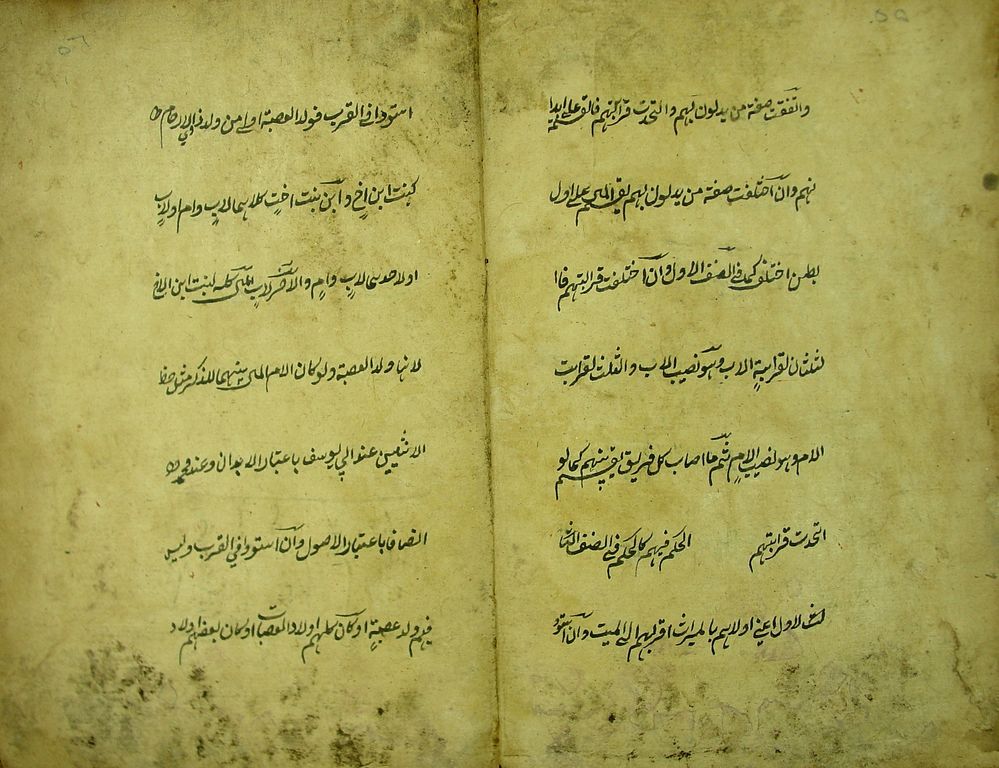 ٥٥
واتفقت صفة من يدلون بهم واتحدت قرابتهم فالقسمة على ابدا
نهم وان اختلفت صفة من يدلون بهم يقسم المال على اول
بطن اختلف كما في الصنف الاول وان اختلفت قرابتهم فا
لثلثان لقرابة الاب وهو نصيب الاب والثلث لقرابت
الام وهو نصيب الام ثم ما اصاب كل فريق يقسم بينهم كما لو
اتحدت قرابتهم الحكم فيهم كالحكم في الصنف
الاول اعني اولاهم بالميراث اقربهم الى الميت وان استوو
٥٦
استووا في القرب فولد العصبة اولى من ولد ذوي الارحام
كبنت ابن اخ وابن بنت اخت كلاهما لاب وام او لاب
او لاحدهما لاب وام والاخر لاب المال كله لبنت ابن الاخ
لانها ولد العصبة ولو كان لام المال بينهما للذكر مثل حظ
الانثيين عند ابي يوسف باعتبار الابدان وعند محمد
انصافا باعتبار الاصول وان استووا في القرب وليس
فيهم ولد عصبة او كان كلهم اولاد العصبات او كان بعضهم اولاد